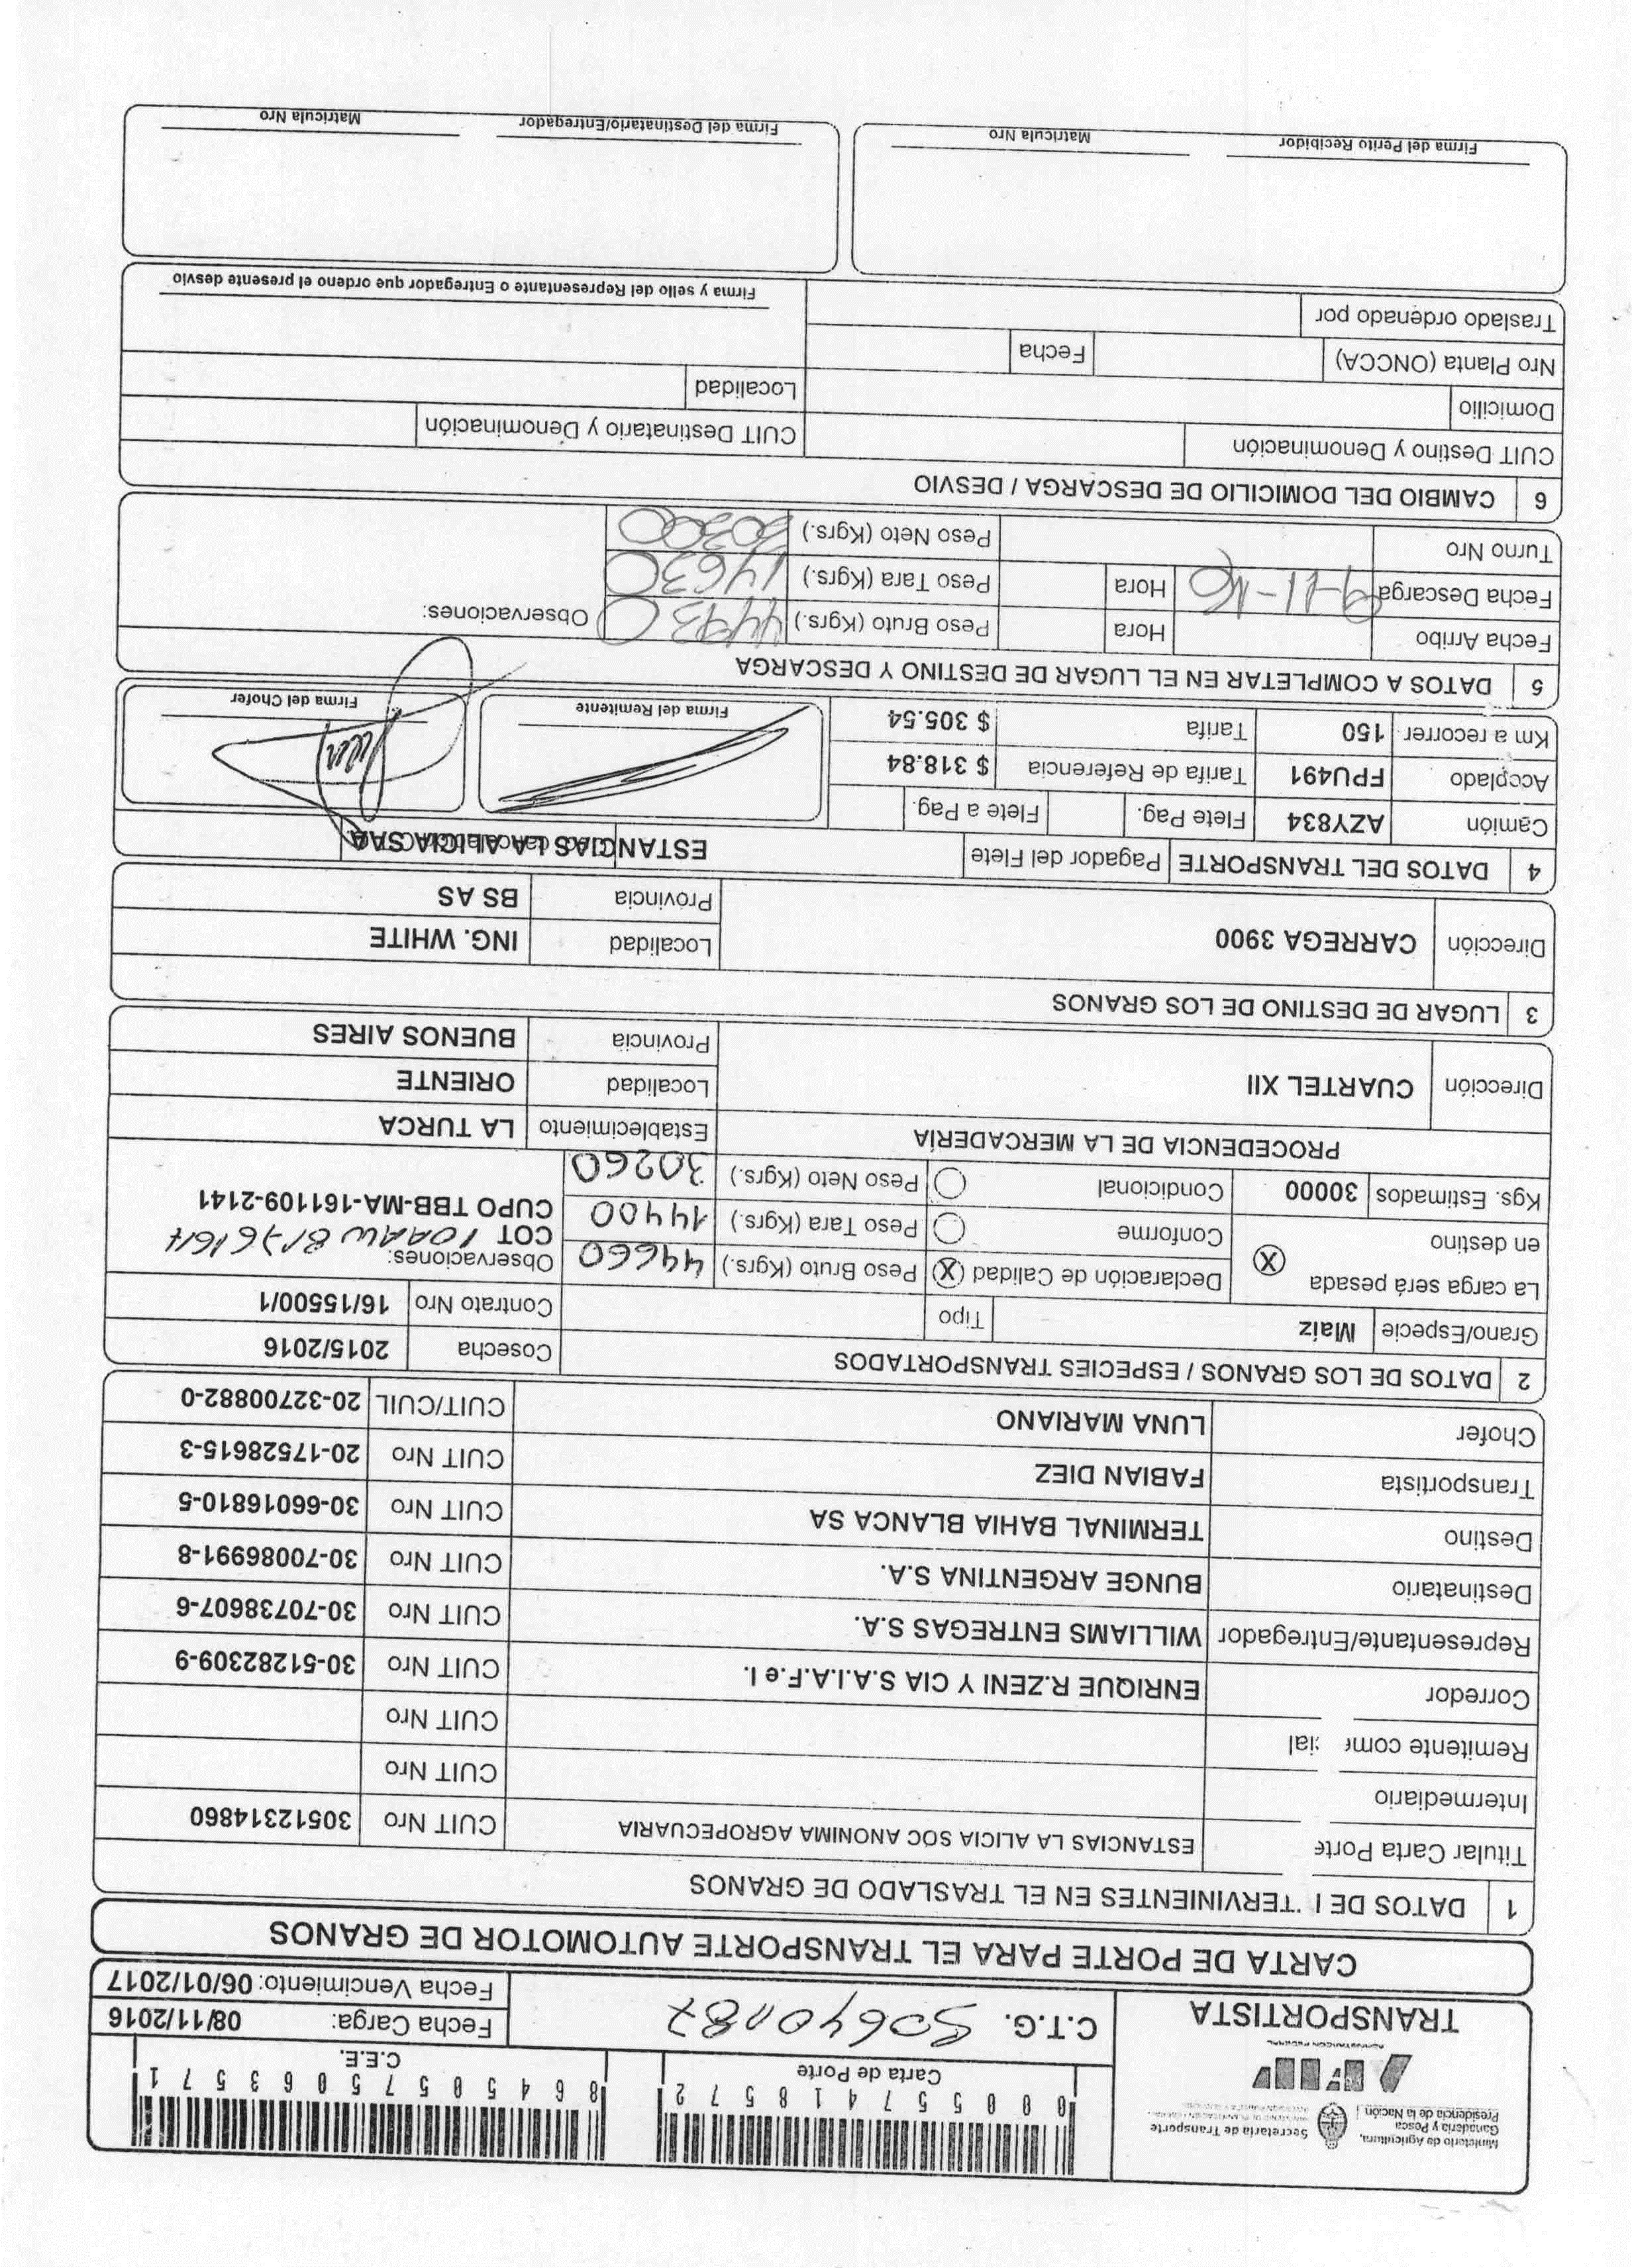 Ministerio de Agricultura,
Ganadería y Pesca
Presidencia de la Nación
Secretaría de Transporte
AFIP
TRANSPORTISTA
000557418572
Carta de Porte
86450575063571
C.E.E.
C.T.G. 50640187
Fecha Carga: 08/11/2016
Fecha Vencimiento: 06/01/2017
CARTA DE PORTE PARA EL TRANSPORTE AUTOMOTOR DE GRANOS
1 DATOS DE I TERVINIENTES EN EL TRASLADO DE GRANOS
Titular Carta Porte ESTANCIAS LA ALICIA SOC ANONIMA AGROPECUARIA CUIT Nro 30512314860
Intermediario CUIT Nro
Remitente com cial CUIT Nro
Corredor ENRIQUE R.ZENI Y CIA S.A.I.A.F.e I. CUIT Nro 30-51282309-9
Representante/Entregador WILLIAMS ENTREGAS S.A. CUIT Nro 30-70738607-6
Destinatario BUNGE ARGENTINA S.A. CUIT Nro 30-70086991-8
Destino TERMINAL BAHIA BLANCA SA CUIT Nro 30-66016810-5
Transportista FABIAN DIEZ CUIT Nro 20-17528615-3
Chofer LUNA MARIANO CUIT/CUIL 20-32700882-0
2 DATOS DE LOS GRANOS / ESPECIES TRANSPORTADOS Cosecha 2015/2016
Grano/Especie Maíz Tipo Contrato Nro 16/15500/1
La carga será pesada en destino X
Declaración de Calidad (X) Peso Bruto (Kgrs.) 44660 Observaciones:
Conforme Peso Tara (Kgrs.) 14400 COT
CUPO TBB-MA-161109-2141
Kgs. Estimados 30000 Condicional Peso Neto (Kgrs.) 30260
PROCEDENCIA DE LA MERCADERÍA Establecimiento LA TURCA
Dirección CUARTEL XII Localidad ORIENTE
Provincia BUENOS AIRES
3 LUGAR DE DESTINO DE LOS GRANOS
Dirección CARREGA 3900 Localidad ING. WHITE
Provincia BS AS
4 DATOS DEL TRANSPORTE Pagador del Flete ESTANCIAS LA ALICIA SAA
Camión AZY834 Flete Pag. Flete a Pag.
Acoplado FPU491 Tarifa de Referencia $ 318.84
Km a recorrer 150 Tarifa $ 305.54
Firma del Remitente
Firma del Chofer
5 DATOS A COMPLETAR EN EL LUGAR DE DESTINO Y DESCARGA
Fecha Arribo Hora Peso Bruto (Kgrs.) 44930 Observaciones:
Fecha Descarga 9-11-16 Hora Peso Tara (Kgrs.) 14630
Turno Nro Peso Neto (Kgrs.) 30300
6 CAMBIO DEL DOMICILIO DE DESCARGA / DESVIO
CUIT Destino y Denominación CUIT Destinatario y Denominación
Domicilio Localidad
Nro Planta (ONCCA) Fecha
Traslado ordenado por
Firma y sello del Representante o Entregador que ordeno el presente desvío
Firma del Perito Recibidor Matricula Nro
Firma del Destinatario/Entregador Matricula Nro